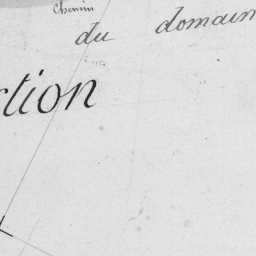 Chemin
du domain
ction